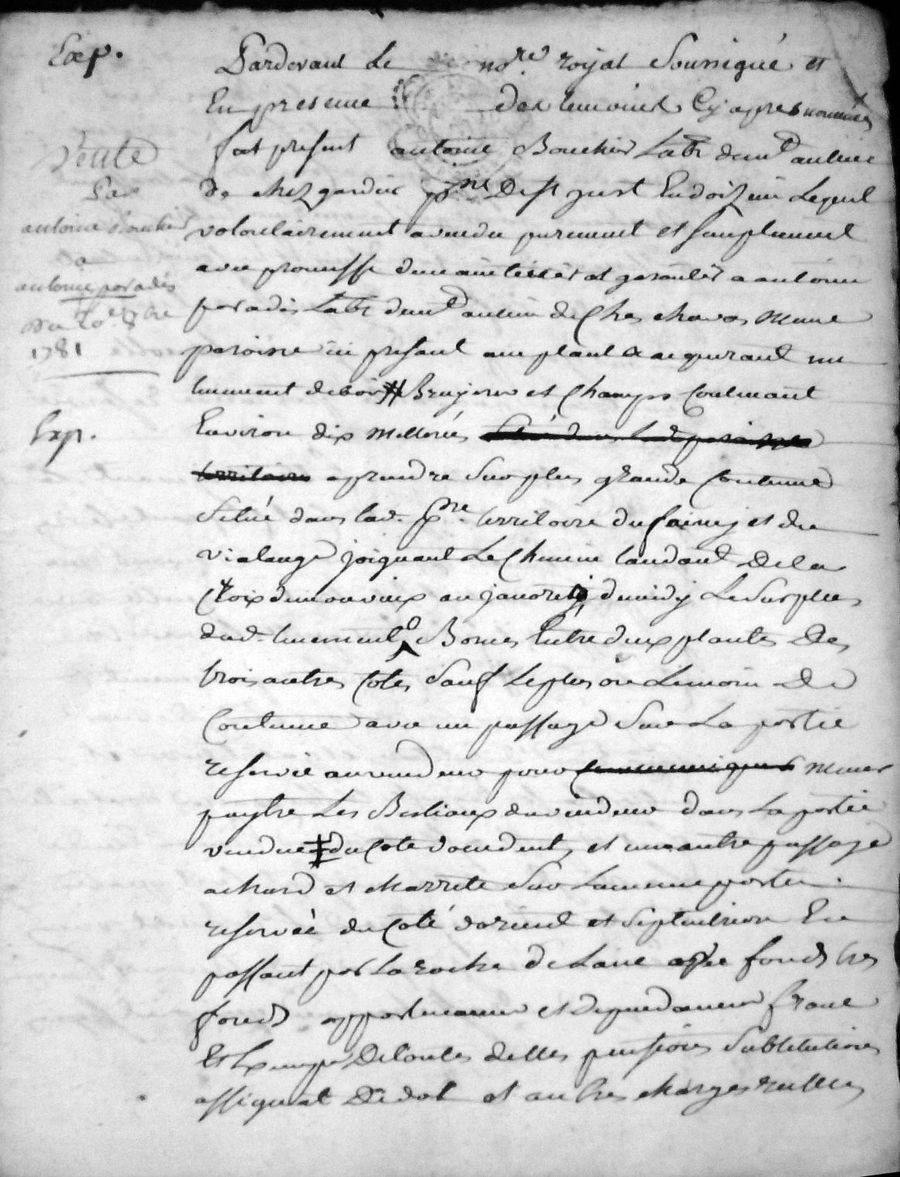 Exp.
Vente
Par
antoine Boucher
a
antoine paradis
Du 8bre
1781
Exp.
Pardevant Le nore royal Soussigné et
En presence des temoins Cy apres nommés
fut present antoine Boucher Labr demt au lieu
de chez gardie psse De St just En doizin Lequel
volontairement a vendu purement et simplement
avec promesse de maintenir et garantir a antoine
paradis Labr demt au lieu de Ches chavas meme
paroisse ici present acceptant & acquerant un
tenement de bois # Bruyeres et Champs Contenant
Environ dix metterées
a prendre Sur plus grande Contenue
Situé dans lad. psse territoire du et du
vialange joignant Le Chemin tandant De la
Croix de mouvieux au de midy Le Surplus
dud. tenement Bornes Entre deux plantés Des
trois autres Cotés Sauf Le plus ou Le moin De
Contenue avec un passage Sur La portie
reservée au vendeur pour mener
paytre Les Bestiaux du vendeur dans La portie
vendue ‡ du Coté doccident, et un autre passage
a chard et charrete Sur La meme portie
reservée du Coté dorient et Septentrion En
passant par La roche De Laue fonds
fonds appartenances et Dependances franc
Et Exempt De toutes dettes pensions Substitutions
assignat De dot et autres charges reelles